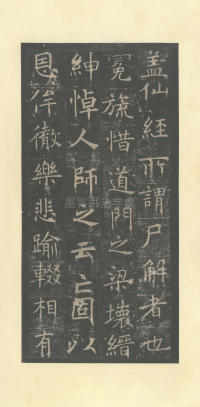 盖仙經所謂尸解者也
冕旒惜道門之梁壞縉
紳悼人師之云亡固以
恩侔徹樂悲踰輟相有